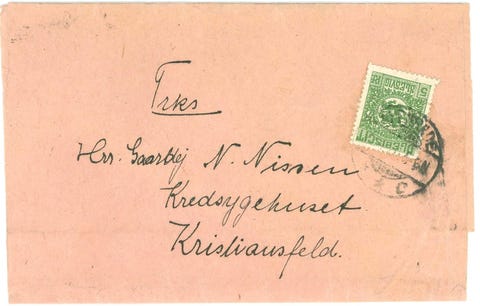 Trks
Hrr. Gaardej N. Nissen
Kredsygehuset
Kristiansfeld.
SLESVIG
5